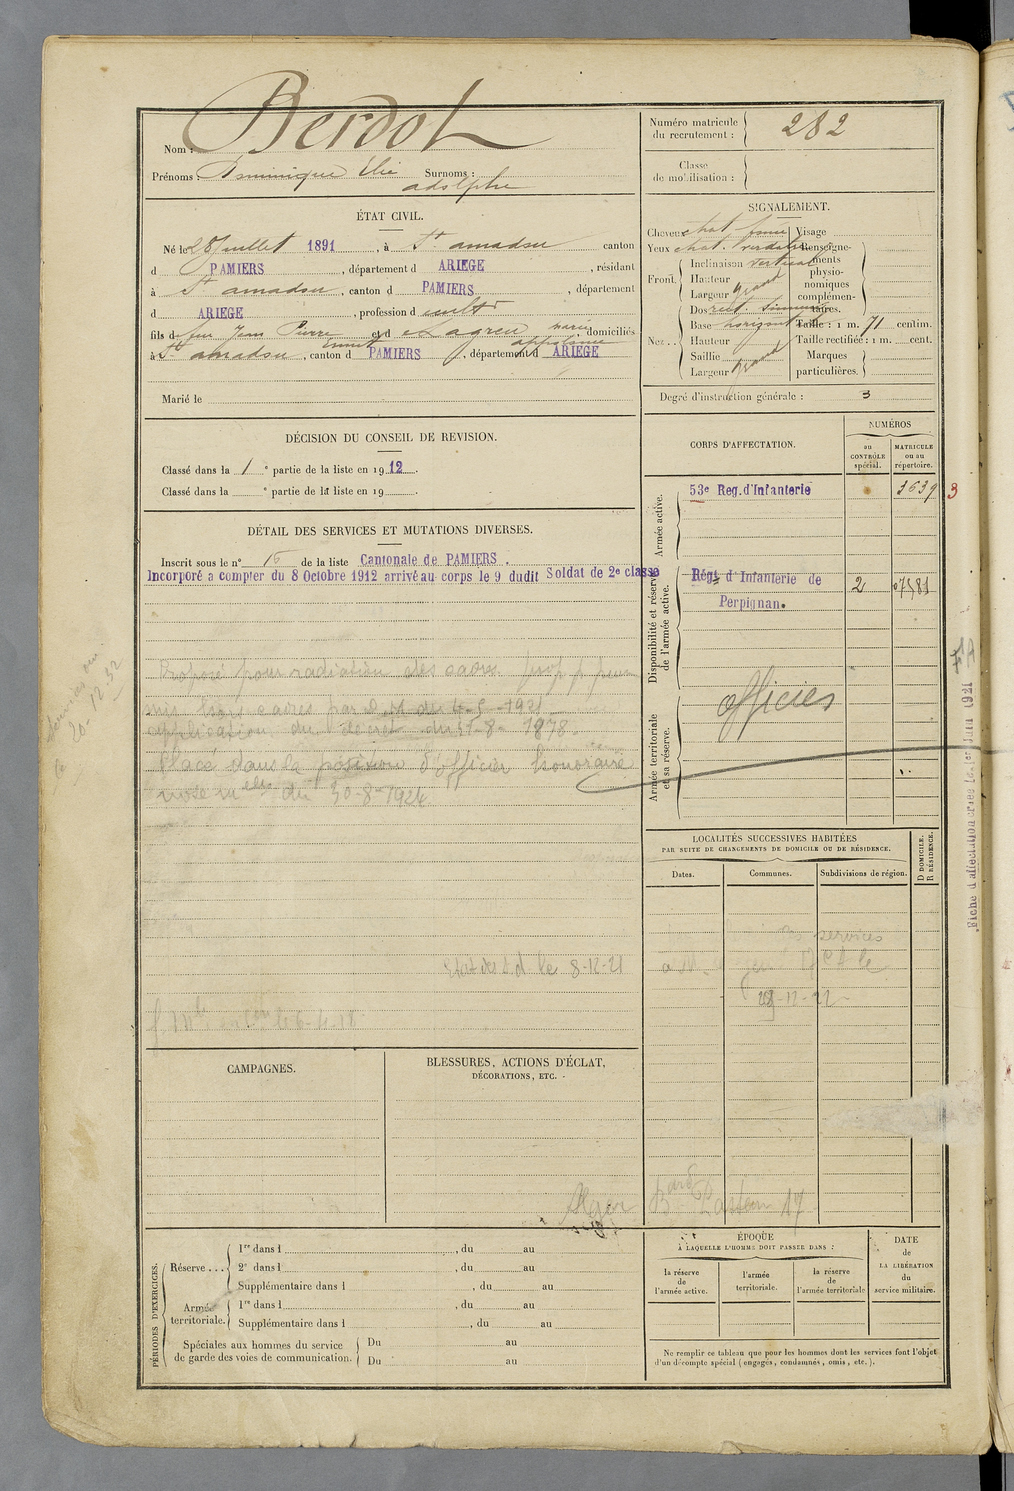 Nom : Berdot
Prénoms : Dominique Elie Surnoms :
adolphe
ÉTAT CIVIL.
Né le 28 Juillet 1891, à St amadou canton
d PAMIERS, département d ARIEGE, résidant
à St amadou, canton d PAMIERS, département
d ARIEGE, profession d cultr
fils de feu Jean Pierre et d Lagreu marie domiciliés
appolonie
à St amadou, canton d PAMIERS, département d ARIEGE
Marié le
DÉCISION DU CONSEIL DE REVISION.
Classé dans la 1e partie de la liste en 1912.
Classé dans la e partie de la liste en 19
DÉTAIL DES SERVICES ET MUTATIONS DIVERSES.
Inscrit sous le n° 15 de la liste Cantonale de PAMIERS.
Incorporé a compter du 8 Octobre 1912 arrivé au corps le 9 dudit Soldat de 2e classe
Proposé pour radiation des cadres
application du décret du 31-8-1878.
Placé dans la position d'officier honoraire
du 30-8-1924
le 8-12-21
20-12-32
CAMPAGNES.
BLESSURES, ACTIONS D'ÉCLAT,
DÉCORATIONS, ETC.
Alger Bard Pasteur 17
PÉRIODES D'EXERCICES.
Réserve...
1re dans l , du au
2e dans l , du au
Supplémentaire dans l , du au
Armée territoriale.
1re dans l , du au
Supplémentaire dans l , du au
Spéciales aux hommes du service
de garde des voies de communication.
Du au
Du au
Numéro matricule
du recrutement : 282
Classe
de mobilisation :
SIGNALEMENT.
Cheveux chat. foncé
Yeux chat. verdatre
Front.
Inclinaison vertical
Hauteur
Largeur grand
Nez..
Dos rect. sinueux
Base horizontale
Hauteur
Saillie
Largeur grand
Visage
Renseignements
physionomiques
complémentaires.
Taille : 1 m. 71 centim.
Taille rectifiée : 1 m. cent.
Marques
particulières.
Degré d'instruction générale : 3
CORPS D'AFFECTATION.
NUMÉROS
au
CONTRÔLE
spécial.
MATRICULE
ou au
répertoire.
Armée active.
53e Reg. d'Infanterie 3639 3
Disponibilité et réserve
de l'armée active.
Régt d'Infanterie de 2 07581
Perpignan.
Armée territoriale
et sa réserve.
officier
Fiche d'affectation créée le 1er Juin 1921
LOCALITÉS SUCCESSIVES HABITÉES
PAR SUITE DE CHANGEMENTS DE DOMICILE OU DE RÉSIDENCE.
Dates.
Communes.
Subdivisions de région.
D DOMICILE.
R RÉSIDENCE.
services
-12-22
ÉPOQUE
À LAQUELLE L'HOMME DOIT PASSER DANS :
la réserve
de
l'armée active.
l'armée
territoriale.
la réserve
de
l'armée territoriale
DATE
de
LA LIBÉRATION
du
service militaire.
Ne remplir ce tableau que pour les hommes dont les services font l'objet
d'un décompte spécial (engagés, condamnés, omis, etc.).